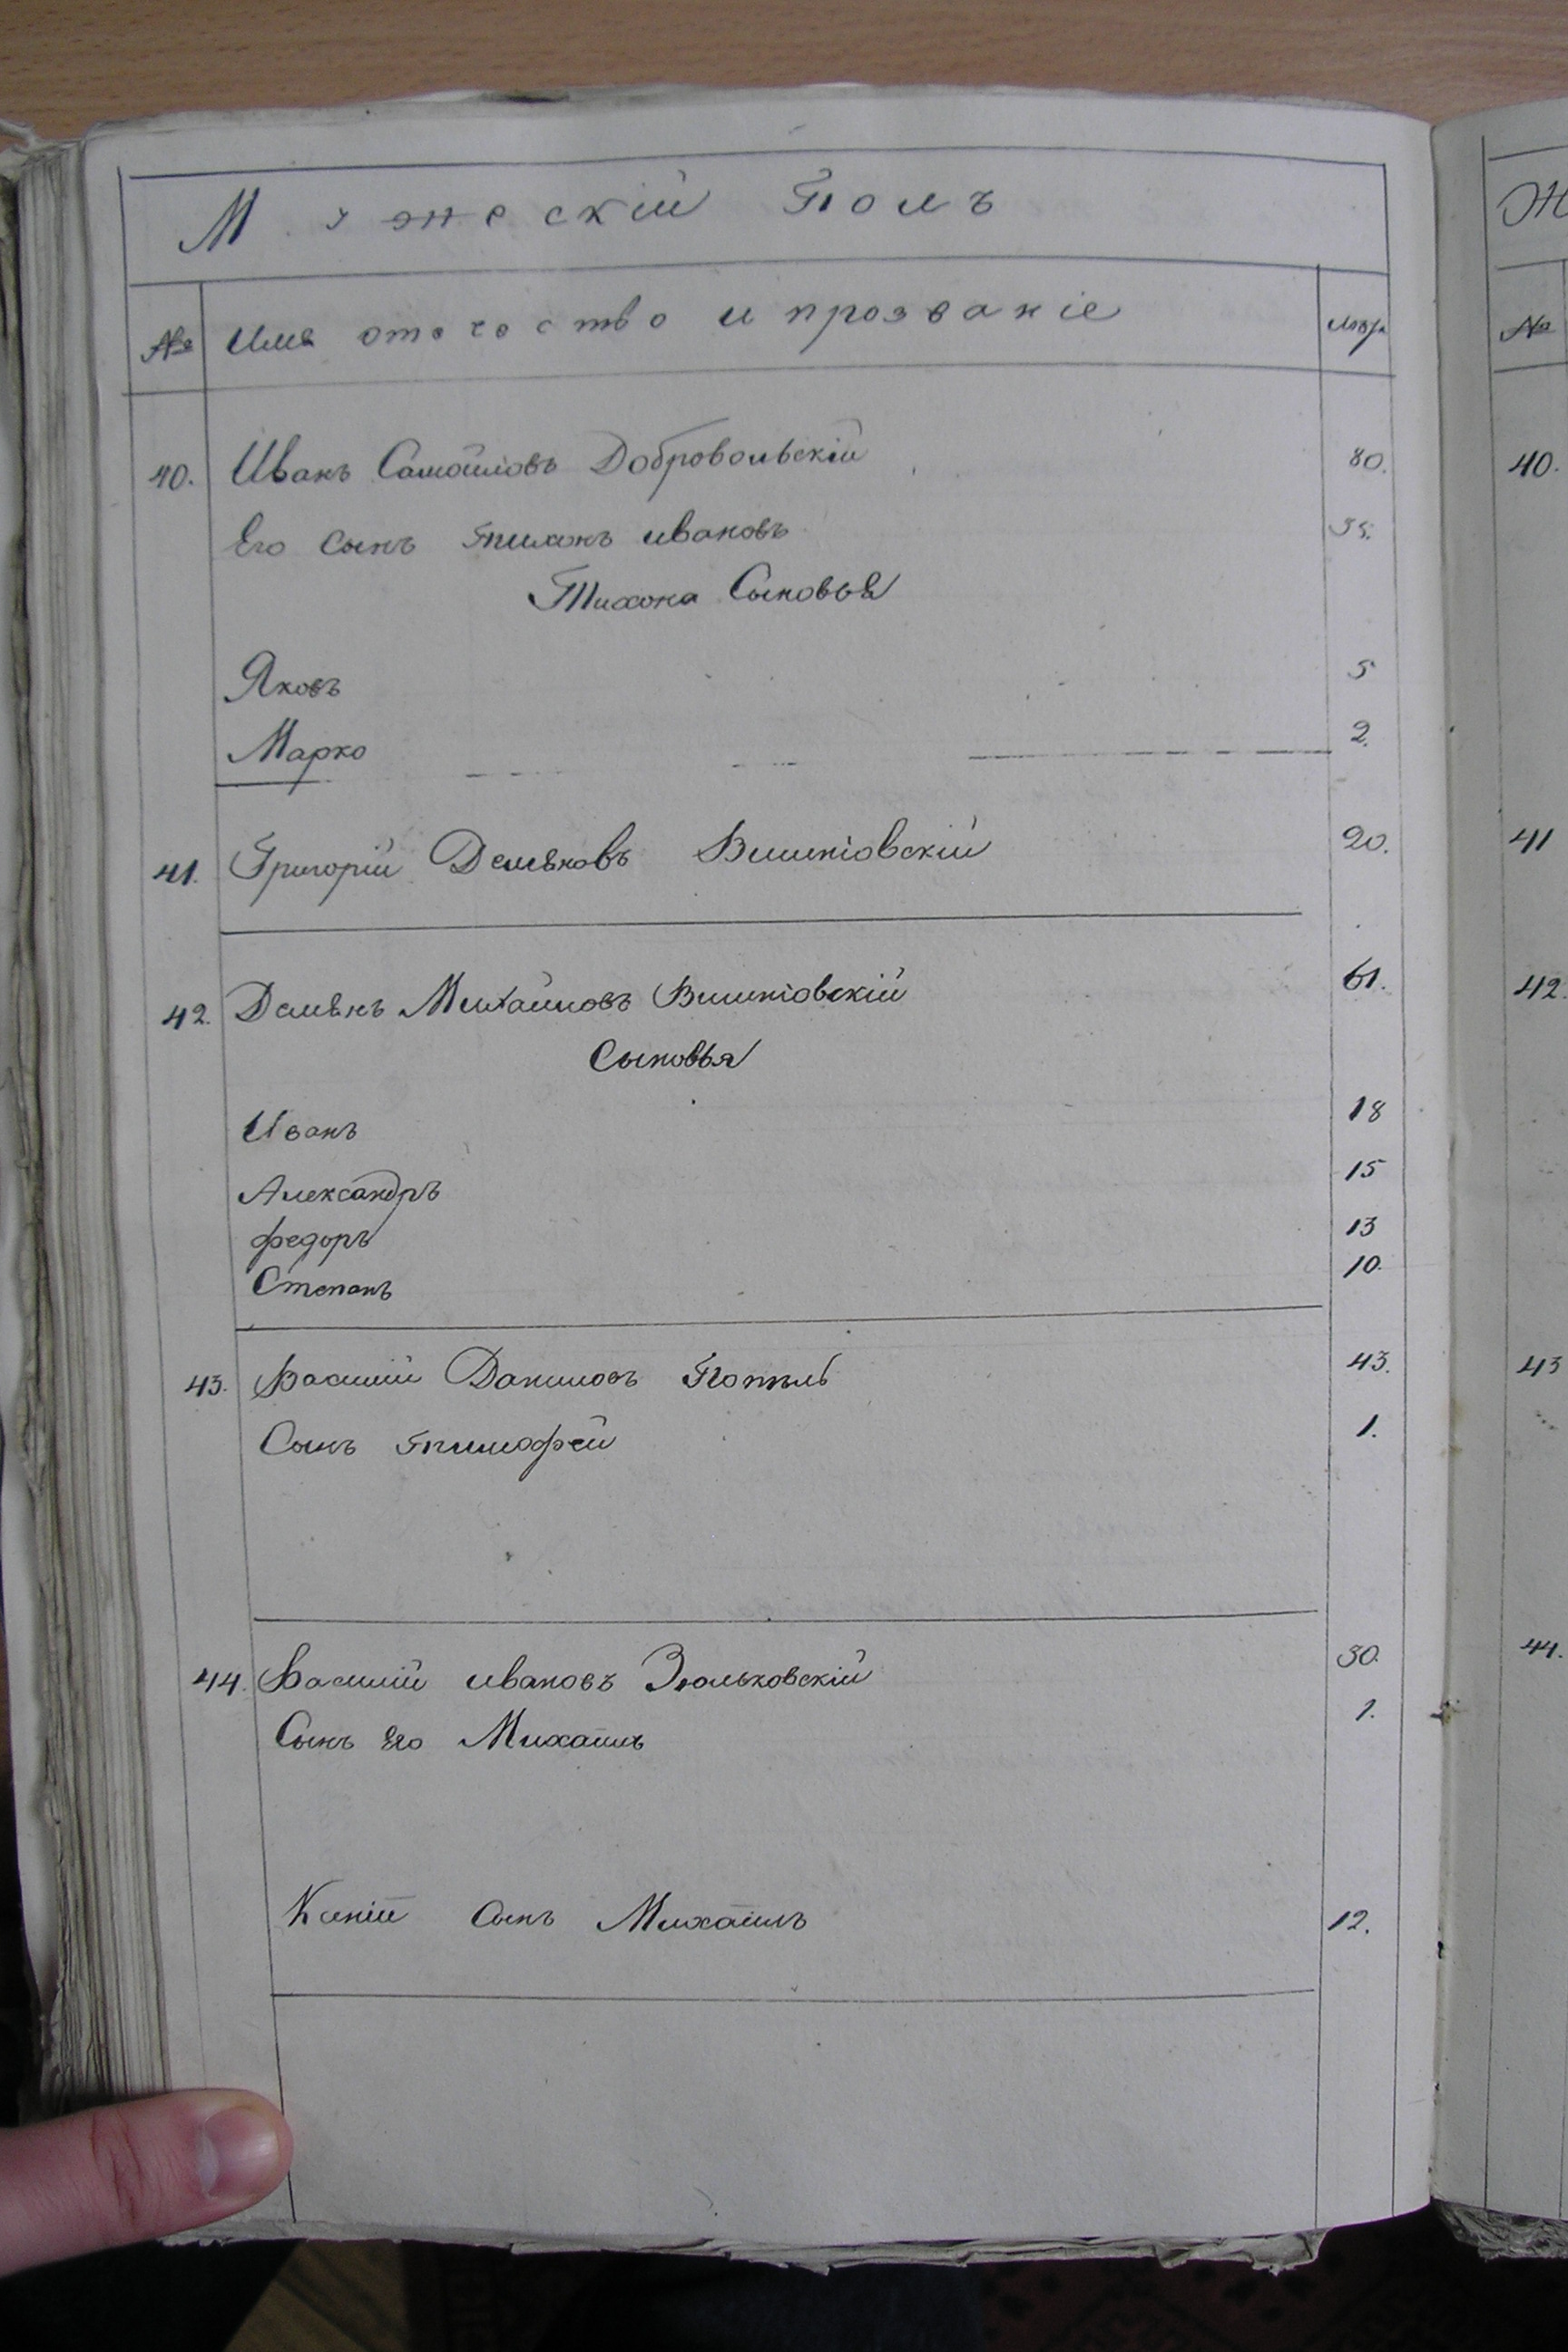 Мужескій Полъ Ж
№ Имя отечество и прозваніе лѣта №
40. Иванъ Самойловъ Добровольскій 80. 40.
Его сынъ тихонъ ивановъ 35.
Тихона Сыновья
Яковъ 5
Марко 2.
41. Григорій Демьяновъ 20. 41
42. Демьянъ Михайловъ 61. 42.
Сыновья
Иванъ 18
Александръ 15
федоръ 13
Степанъ 10.
43. Василій Даниловъ 43. 43
Сынъ тимофей 1.
44. Василій ивановъ Зюльковскій 30. 44.
Сынъ его Михаилъ 1.
Ксеніи сынъ Михаилъ 12.